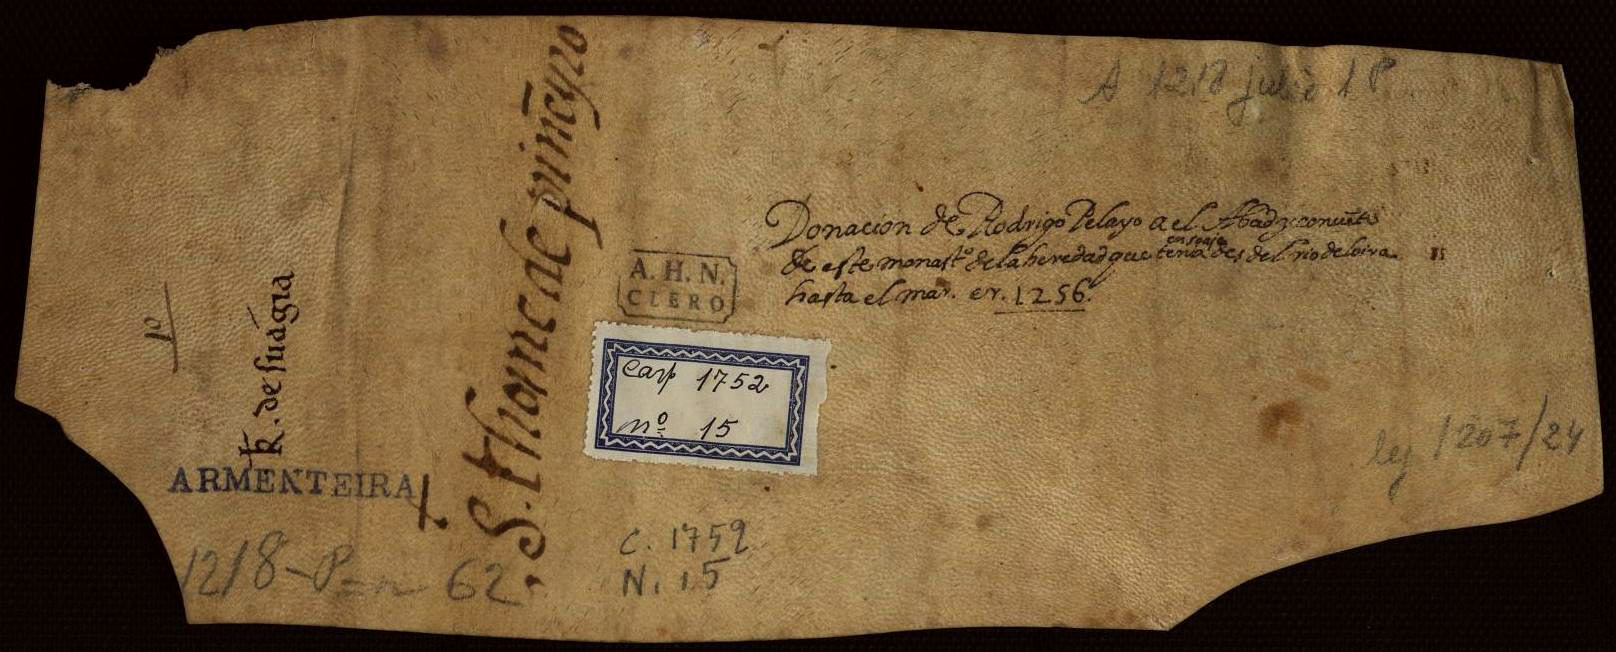 A 1218 julio 1 P
Donacion de Rodrigo Pelayo a el Abad y conuẽto
en soaje
de este monast.º de la heredad que tenia des del rio de loira
hasta el mar. er. 1256.
A. H. N.
CLERO
Carp 1752
nº 15
leg 1207/24
C. 1752
N. 15
S. thome de pin
de suagia
1º
ARMENTEIRA
1218 - P = n 62